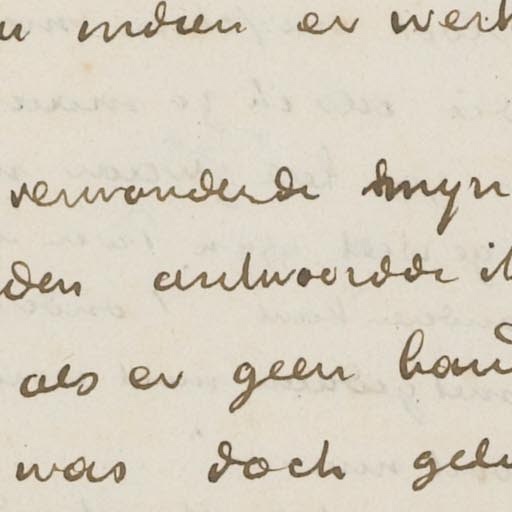 indien er werk
verwonderde myn
den antwoordde ik
als er geen hand
was doch gelu